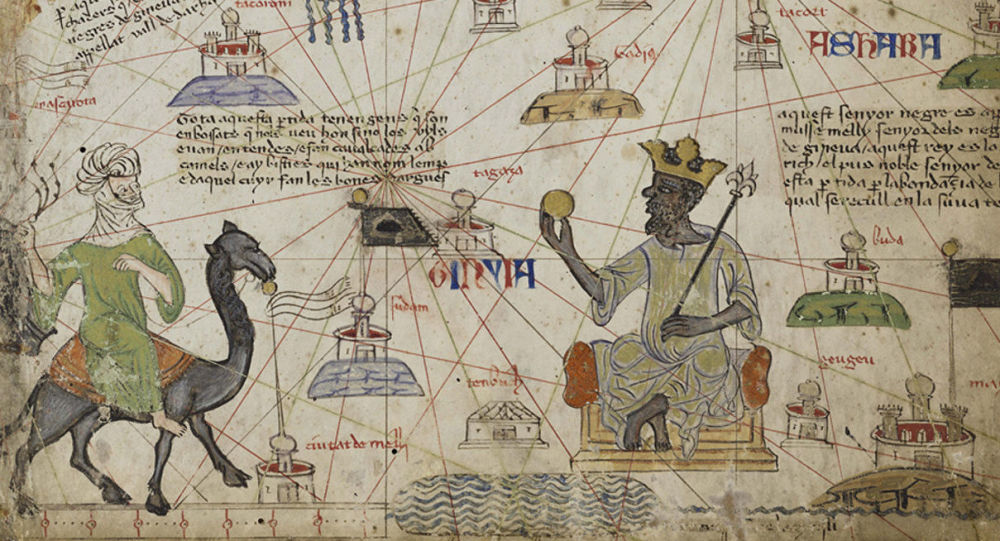 negres de gineua
appellat vall de darha
tacort
ASHARA
Tota aquesta ptida tenen gens q son
enbossats q nols veu hom sino los uyls
e uan / en tendes / e fan caualcades ab
camels / e ay bisties qui han nom lemp
e daquel cuyr fan les bones dargues
aquest senyor negre es ap
musse melly senyor dels neg
de gineua / aquest rey es lo
rich / el pus noble senyor de
esta ptida p labondacia de
qual se recull en la suua te
tagaza
buda
GINVIA
sudam
geugeu
tenbuch
ma
ciutat de melly